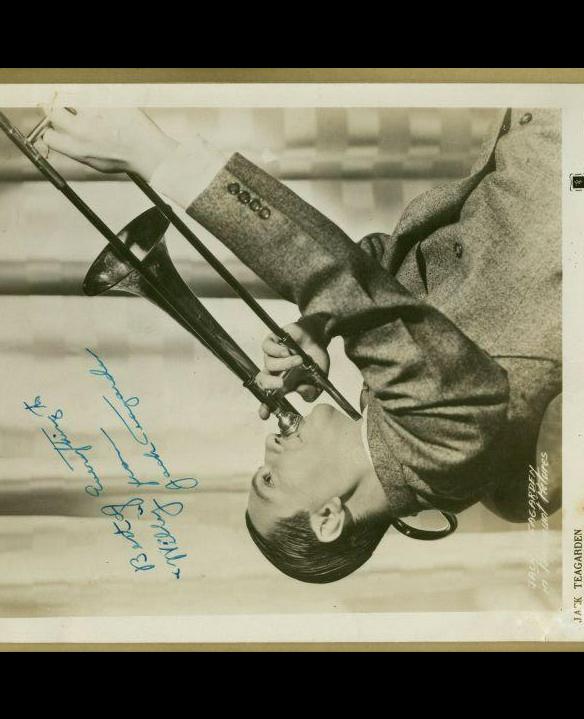 Best of Everything to
Willy from
Jack Teagarden
JACK TEAGARDEN
in Paramount Pictures
JACK TEAGARDEN